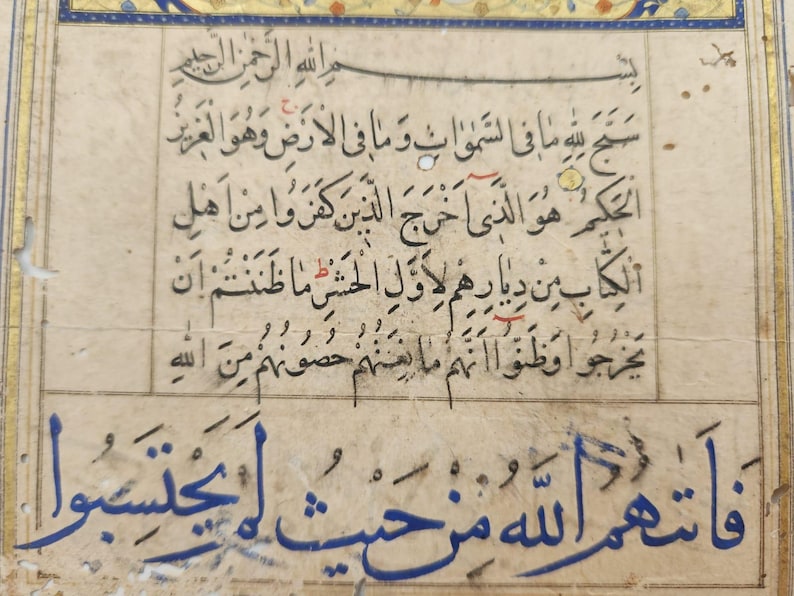 بِسْمِ اللهِ الرَّحْمٰنِ الرَّحِيمِ
سَبَّحَ لِلّٰهِ مَا فِى السَّمٰوَاتِ وَمَا فِى الْاَرْضِ وَهُوَ الْعَزِيزُ
الْحَكِيمُ هُوَ الَّذِى اَخْرَجَ الَّذِينَ كَفَرُوا مِنْ اَهْلِ
الْكِتَابِ مِنْ دِيَارِهِمْ لِاَوَّلِ الْحَشْرِ مَا ظَنَنْتُمْ اَنْ
يَخْرُجُوا وَظَنُّوا اَنَّهُمْ مَانِعَتُهُمْ حُصُونُهُمْ مِنَ اللهِ
فَاَتٰهُمُ اللّٰهُ مِنْ حَيْثُ لَمْ يَحْتَسِبُوا